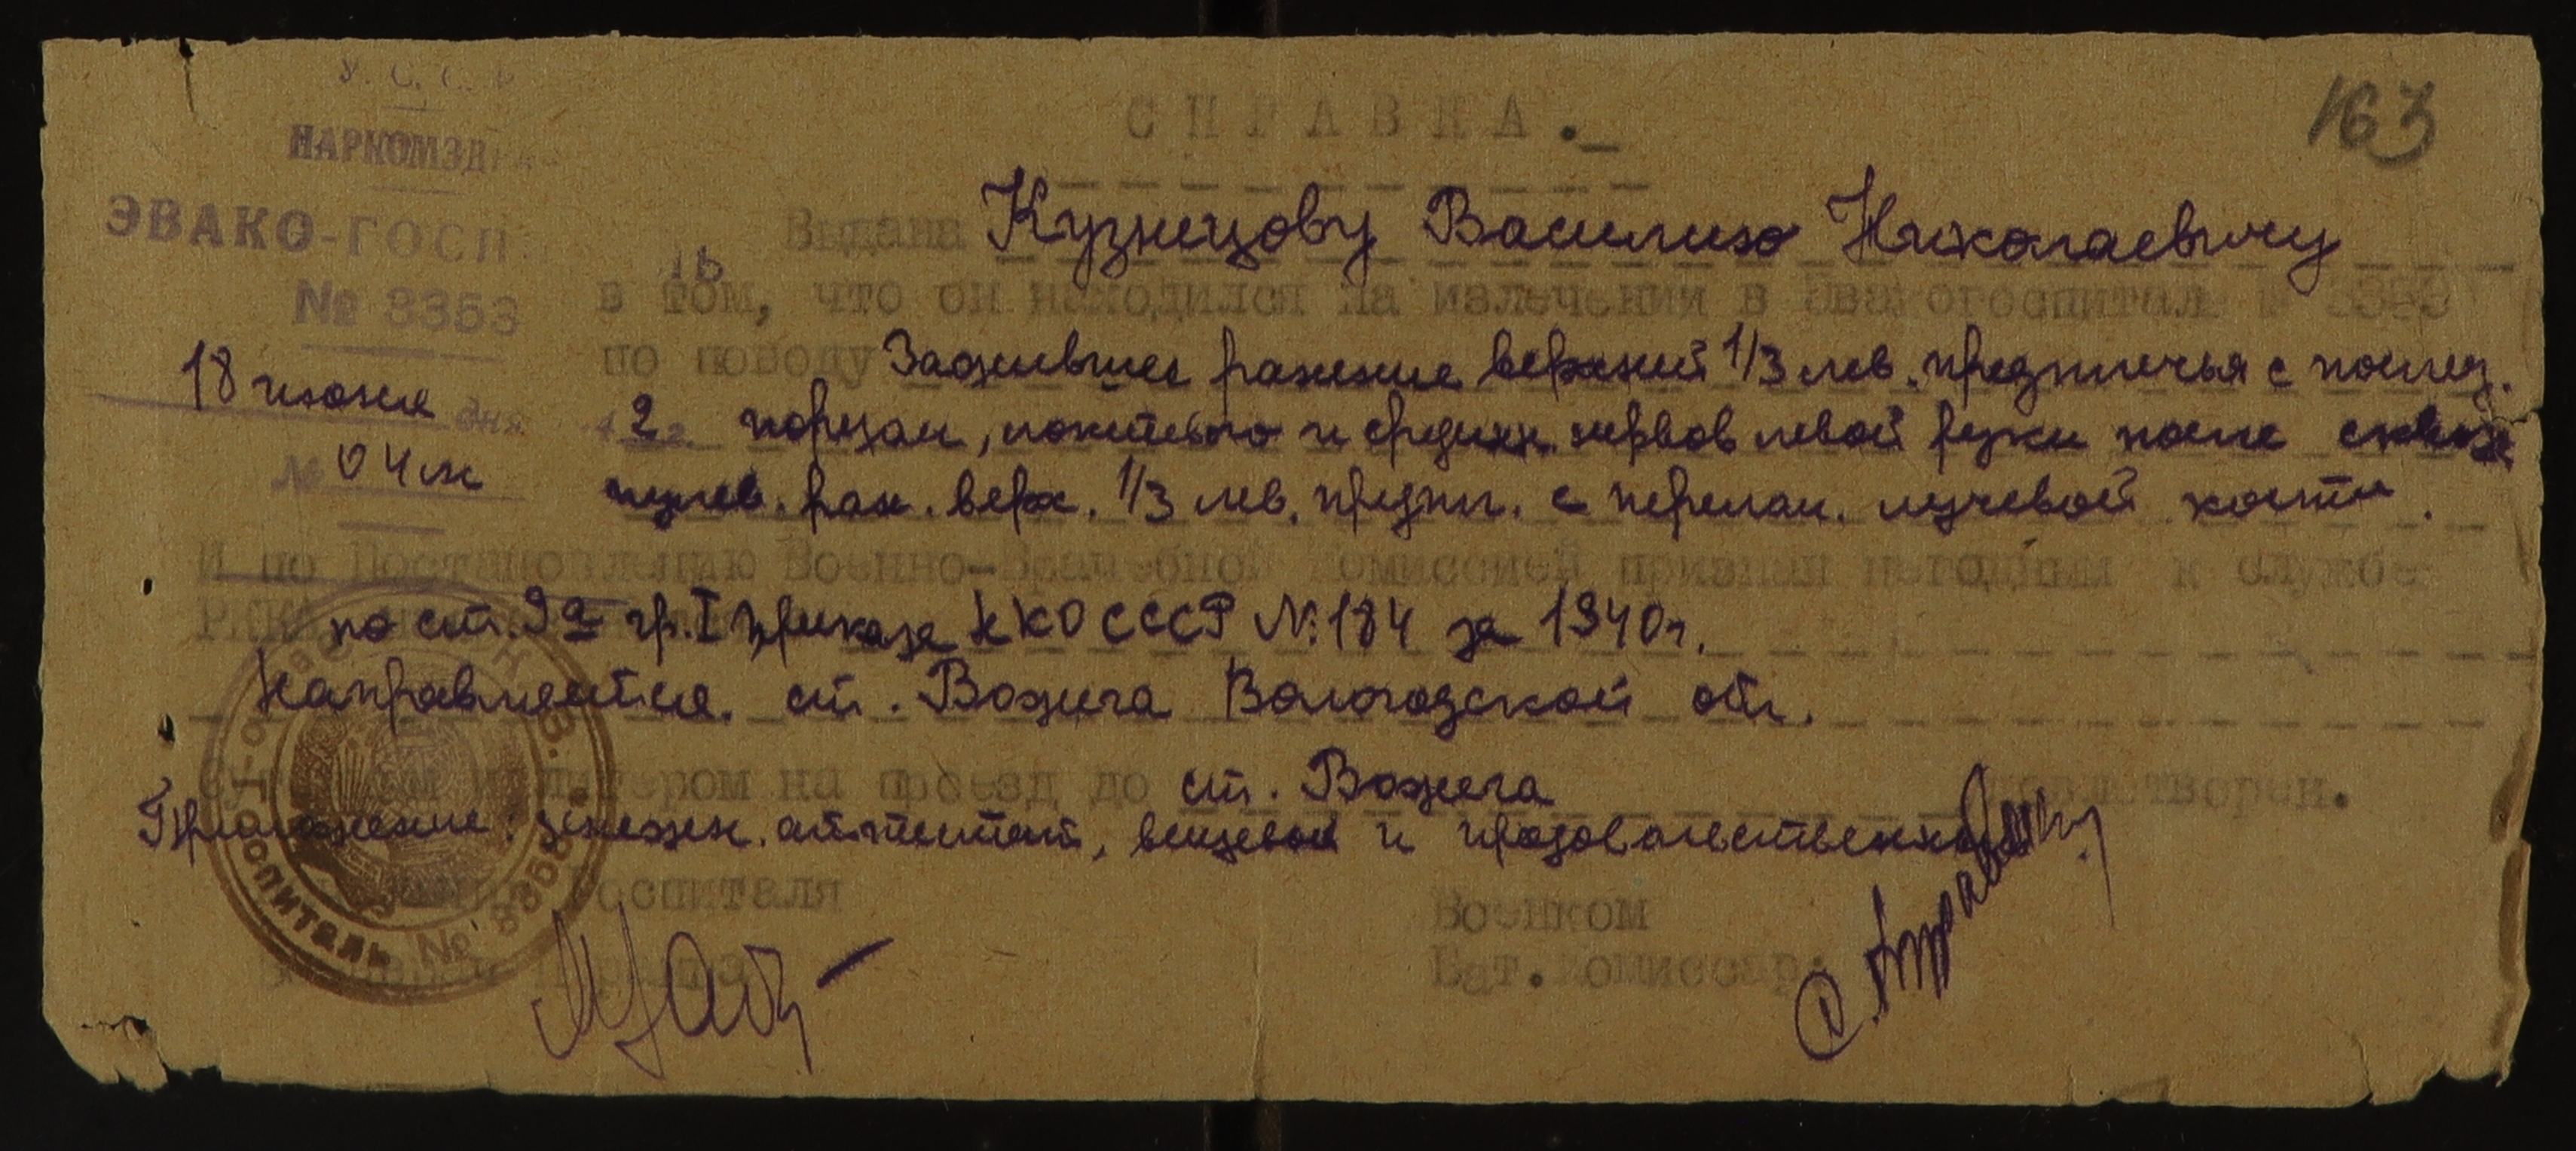 163
НАРКОМЗДРАВ
ЭВАКО-ГОСП
№ 3353
18 июня дня 42 г.
№ 04/н
СПРАВКА.
Выдана Кузнецову Василию Николаевичу
в том, что он находился на излечении в Эвакогоспитале № 3353
по поводу Зажившее ранение верхней 1/3 лев. предплечья с послед.
порезом, локтевого и средин. нервов левой руки после сквозн.
пулев. ран. верх. 1/3 лев. предпл. с перелом. лучевой кости.
И по Постановлению Военно-Врачебной Комиссией признан негодным к службе
РККА
по ст. 9а гр. I приказа НКО СССР № 184 за 1940 г.
Направляется ст. Вожега Вологодской обл.
литером на проезд до ст. Вожега удовлетворен.
Приложение: денежн. аттестат, вещевой и продовольственный
Госпиталя
Военком
Бат. Комиссар:
Госпиталь № 3353